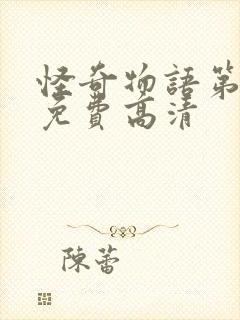 怪奇物語第
免費高清
陳蕾